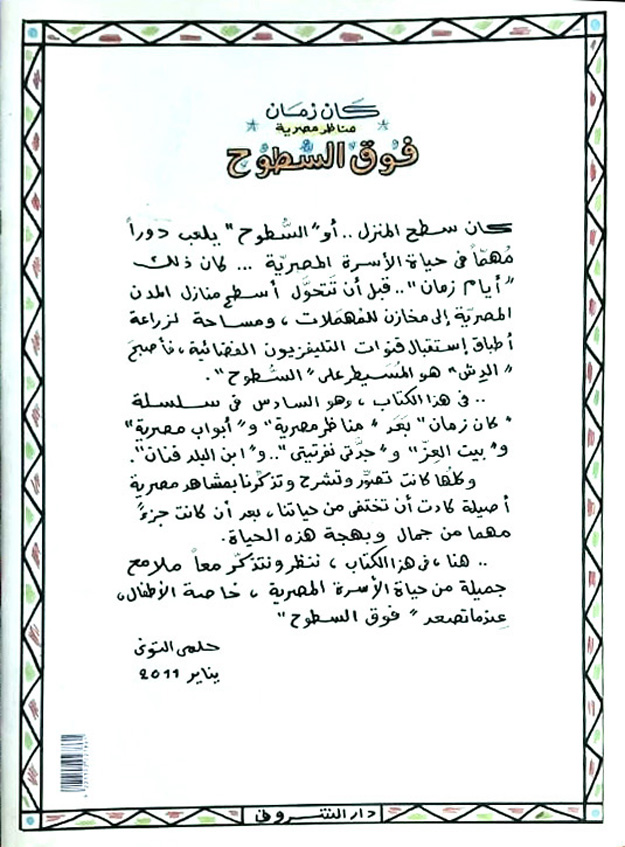 كان زمان
مناظر مصرية
فوق السُّطُوح
كان سطح المنزل .. أو "السُّطوح" يلعب دوراً
مُهمّاً فى حياة الأسرة المصريّة ... كان ذلك
"أيام زمان" .. قبل أن تَتحوَّل أسطح منازل المدن
المصريّة إلى مخازن للمُهمَلات ، ومساحة لزراعة
أطباق إستقبال قنوات التليفزيون الفضائية ، فأصبحَ
"الدِش" هو المُسَيطر على "السُّطوح" .
.. فى هذا الكتاب ، وهو السادس فى سلسلة
"كان زمان" بَعَد "مناظر مصرية" و "أبواب مصرية"
و "بيت العِزّ" و "جدَّتى نفرتيتى" .. و "ابن البلد فنان" .
وكلّها كانت تصَوّر وتشرح وتذكّرنا بمشاهد مصرية
أصيلة كادت أن تختفى من حياتنا ، بعد أن كانت جزءاً
مهما من جمال وبهجة هذه الحياة .
.. هنا ، فى هذا الكتاب ، ننظر ونتذكّر معاً ملامح
جميلة من حياة الأسرة المصرية ، خاصة الأطفال ،
عِندما تصعد "فوق السطوح"
حلمى التونى
يناير 2011
دار الشروق